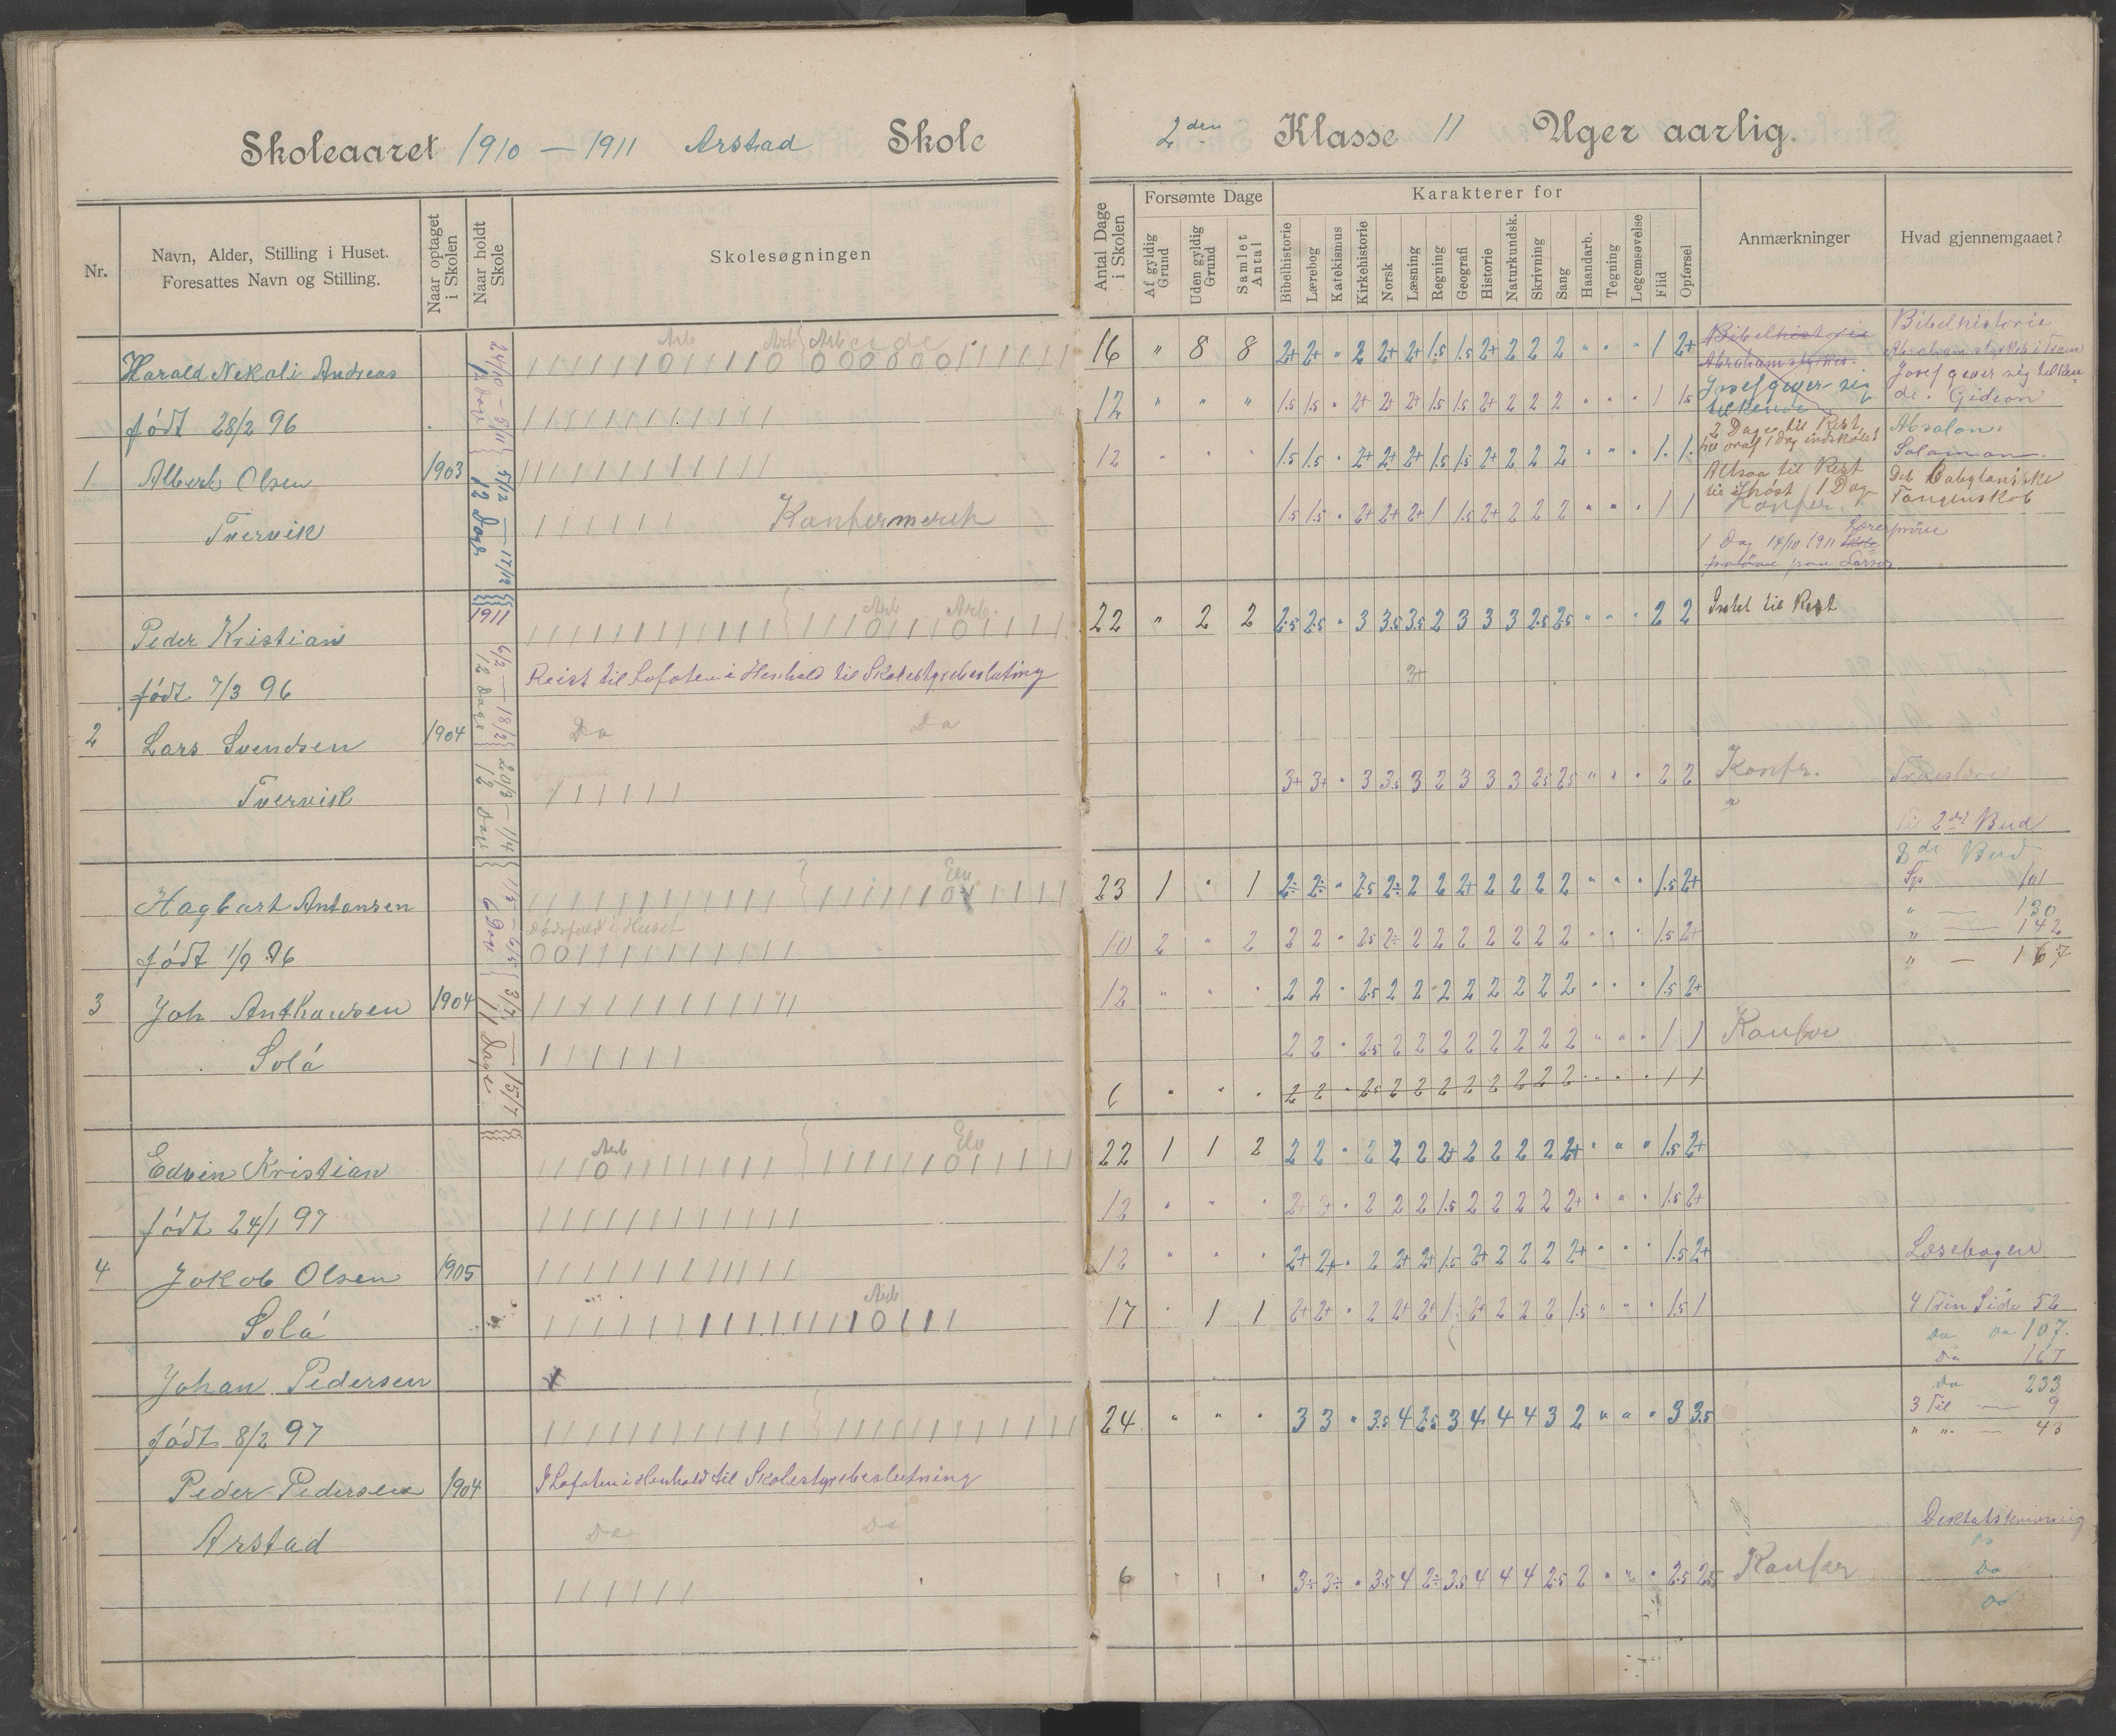 Skoleaaret 1910 — 1911 Arstad Skole
2den Klasse 11 Uger aarlig.
Nr.
Navn, Alder, Stilling i Huset.
Foresattes Navn og Stilling.
Naar optaget i Skolen
Naar holdt Skole
Skolesøgningen
Antal Dage i Skolen
Forsømte Dage
Af gyldig Grund
Uden gyldig Grund
Samlet Antal
Karakterer for
Bibelhistorie
Lærebog
Katekismus
Kirkehistorie
Norsk
Læsning
Regning
Geografi
Historie
Naturkundsk.
Skrivning
Sang
Haandarb.
Tegning
Legemsøvelse
Flid
Opførsel
Anmærkninger
Hvad gjennemgaaet?
Harald Nekoli Andreas
født 28/2 96
1 Albert Olsen 1903
Tvervik
Konfermeret
16 " 8 8 2+ 2+ " 2 2+ 2+ 1.5 1.5 2+ 2 2 2 " " " 1 2+
12 " " " 1.5 1.5 " 2+ 2+ 2+ 1.5 1.5 2+ 2 2 2 " " " 1 1.5
12 " " " 1.5 1.5 " 2+ 2+ 2+ 1.5 1.5 2+ 2 2 2 " " " 1 1
1.5 1.5 " 2+ 2+ 2+ 1 1.5 2+ 2 2 2 " " " 1 1
Bibelhistorie
Josef giver sig
tilkende
2 Dage til Rest
Altsaa til Rest
til høst 1 Dag
Konfer.
1 Dag 14/10 1911
Bibelhistorie
Josef giver sig tilken
de. Gideon
Absalon.
Salamon.
Det Babylaniske
Fangenskab
Peder Kristian
født 7/3 96
2 Lars Svendsen 1904
Tvervik
1911
Reist til Lofoten i Henhold til Skolestyrebeslutning
Da Da
22 " 2 2 2.5 2.5 " 3 3.5 3.5 2 3 3 3 2.5 2.5 " " " 2 2
Intet til Rest
3+
3+ 3+ " 3 3.5 3 2 3 3 3 2.5 2.5 " " " 2 2
Konfr.
Til 2det Bud
8de Bud
Sp 101
" — 130
" — 142
" — 167
Hagbart Antonsen
født 1/9 96
3 Joh Anthonsen 1904
Solå
Dødsfald i Huset
23 1 " 1 2÷ 2÷ " 2.5 2÷ 2 2 2+ 2 2 2 2 " " " 1.5 2+
10 2 " 2 2 2 " 2.5 2÷ 2 2 2 2 2 2 2 " " " 1.5 2+
12 " " " 2 2 " 2.5 2 2 2 2 2 2 2 2 " " " 1.5 2+
2 2 " 2.5 2 2 2 2 2 2 2 2 " " " 1 1
Konfer
6 " " " 2 2 " 2.5 2 2 2 2 2 2 2 2 " " " 1 1
Edvin Kristian
født 24/1 97
4 Jokob Olsen 1905
Solå
22 1 1 2 2 2 " 2 2 2 2+ 2 2 2 2 2+ " " " 1.5 2+
12 " " " 2+ 2+ " 2 2 2 1.5 2 2 2 2 2+ " " " 1.5 2+
12 " " " 2+ 2+ " 2 2+ 2+ 1.5 2+ 2 2 2 2+ " " " 1.5 2+
17 " 1 1 2+ 2+ " 2 2+ 2+ 1.5 2+ 2 2 2 1.5 " " " 1.5 1
Læsebogen
4 Trin Side 52
da da 107.
da 167
da 233
3 Til — 9
" " — 43
Johan Pedersen
født 8/2 97
Peder Pedersen 1904
Arstad
I Lofoten i Henhold til Skolestyrebeslutning
Da Da
24 " " " 3 3 " 3.5 4 2.5 3 4 4 4 3 2 " " " 3 3.5
6 " " " 3÷ 3÷ " 3.5 4 2÷ 3.5 4 4 4 2.5 2 " " " 2.5 2.5
Konfer
Diktatskrivning
Da
Da
Da